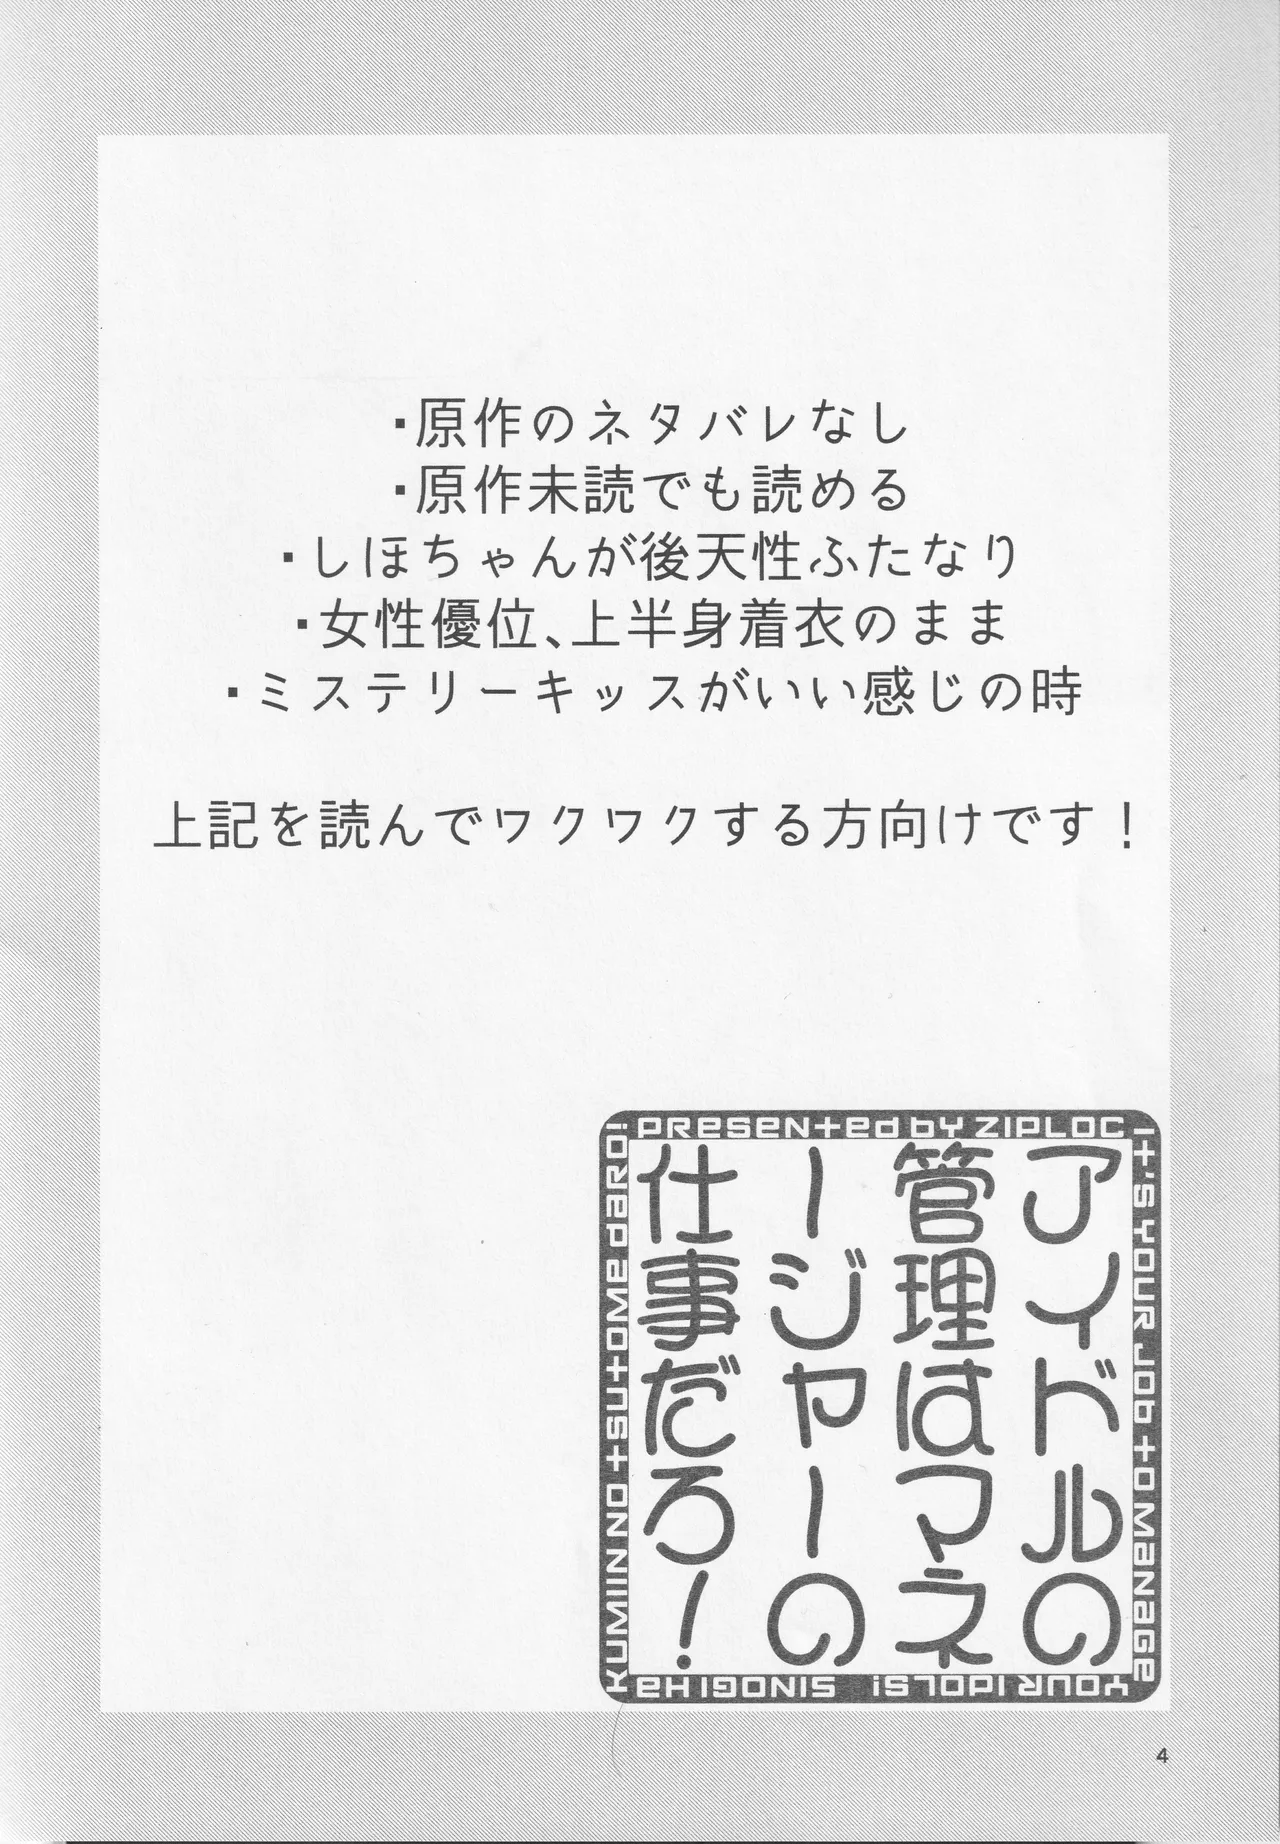 ・原作のネタバレなし
・原作未読でも読める
・しほちゃんが後天性ふたなり
・女性優位、上半身着衣のまま
・ミステリーキッスがいい感じの時
上記を読んでワクワクする方向けです！
PRESENTED BY ZIPLOC
IT'S YOUR JOB TO MANAGE
YOUR IDOLS!
SINOGI HA
KUMIIN NO TSUTOME DARO!
アイドルの
管理はマネ
ージャーの
仕事だろ！
4